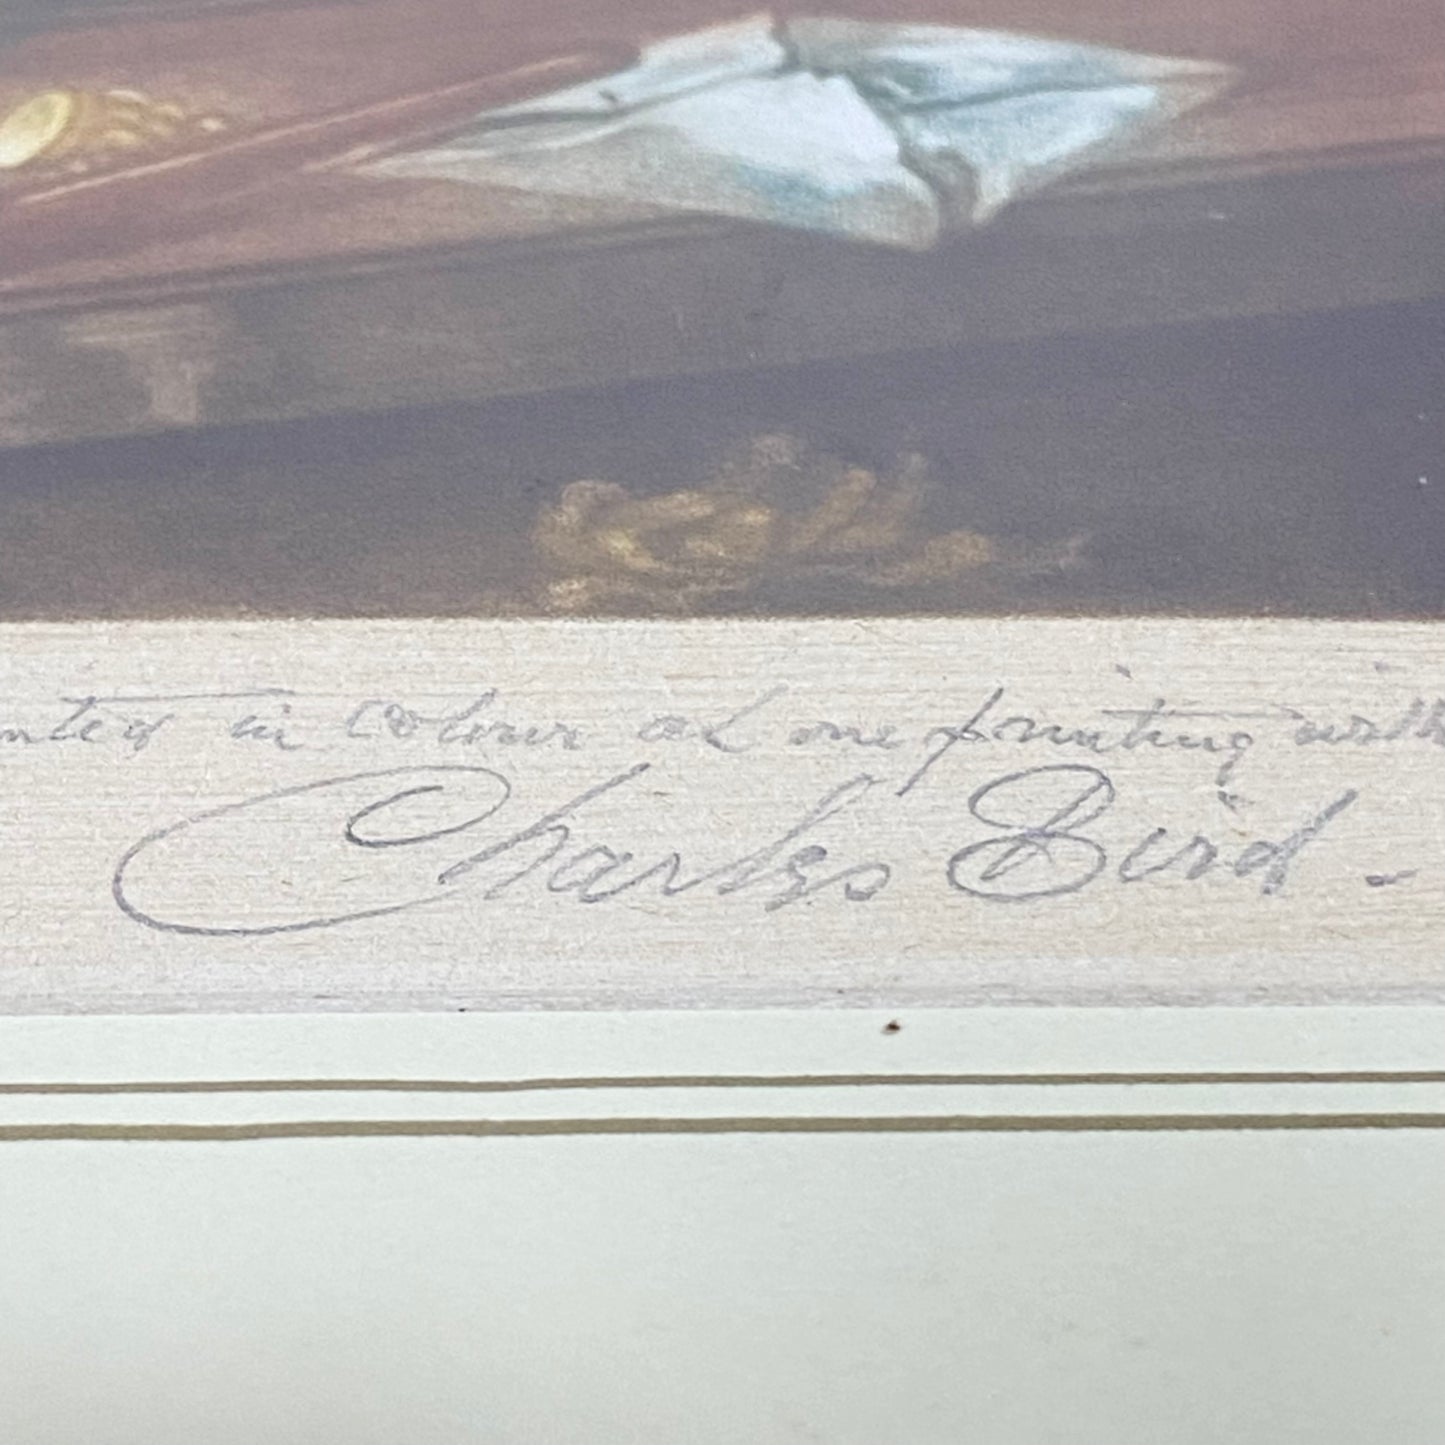 nted in colour at one printing with
Charles Bird.